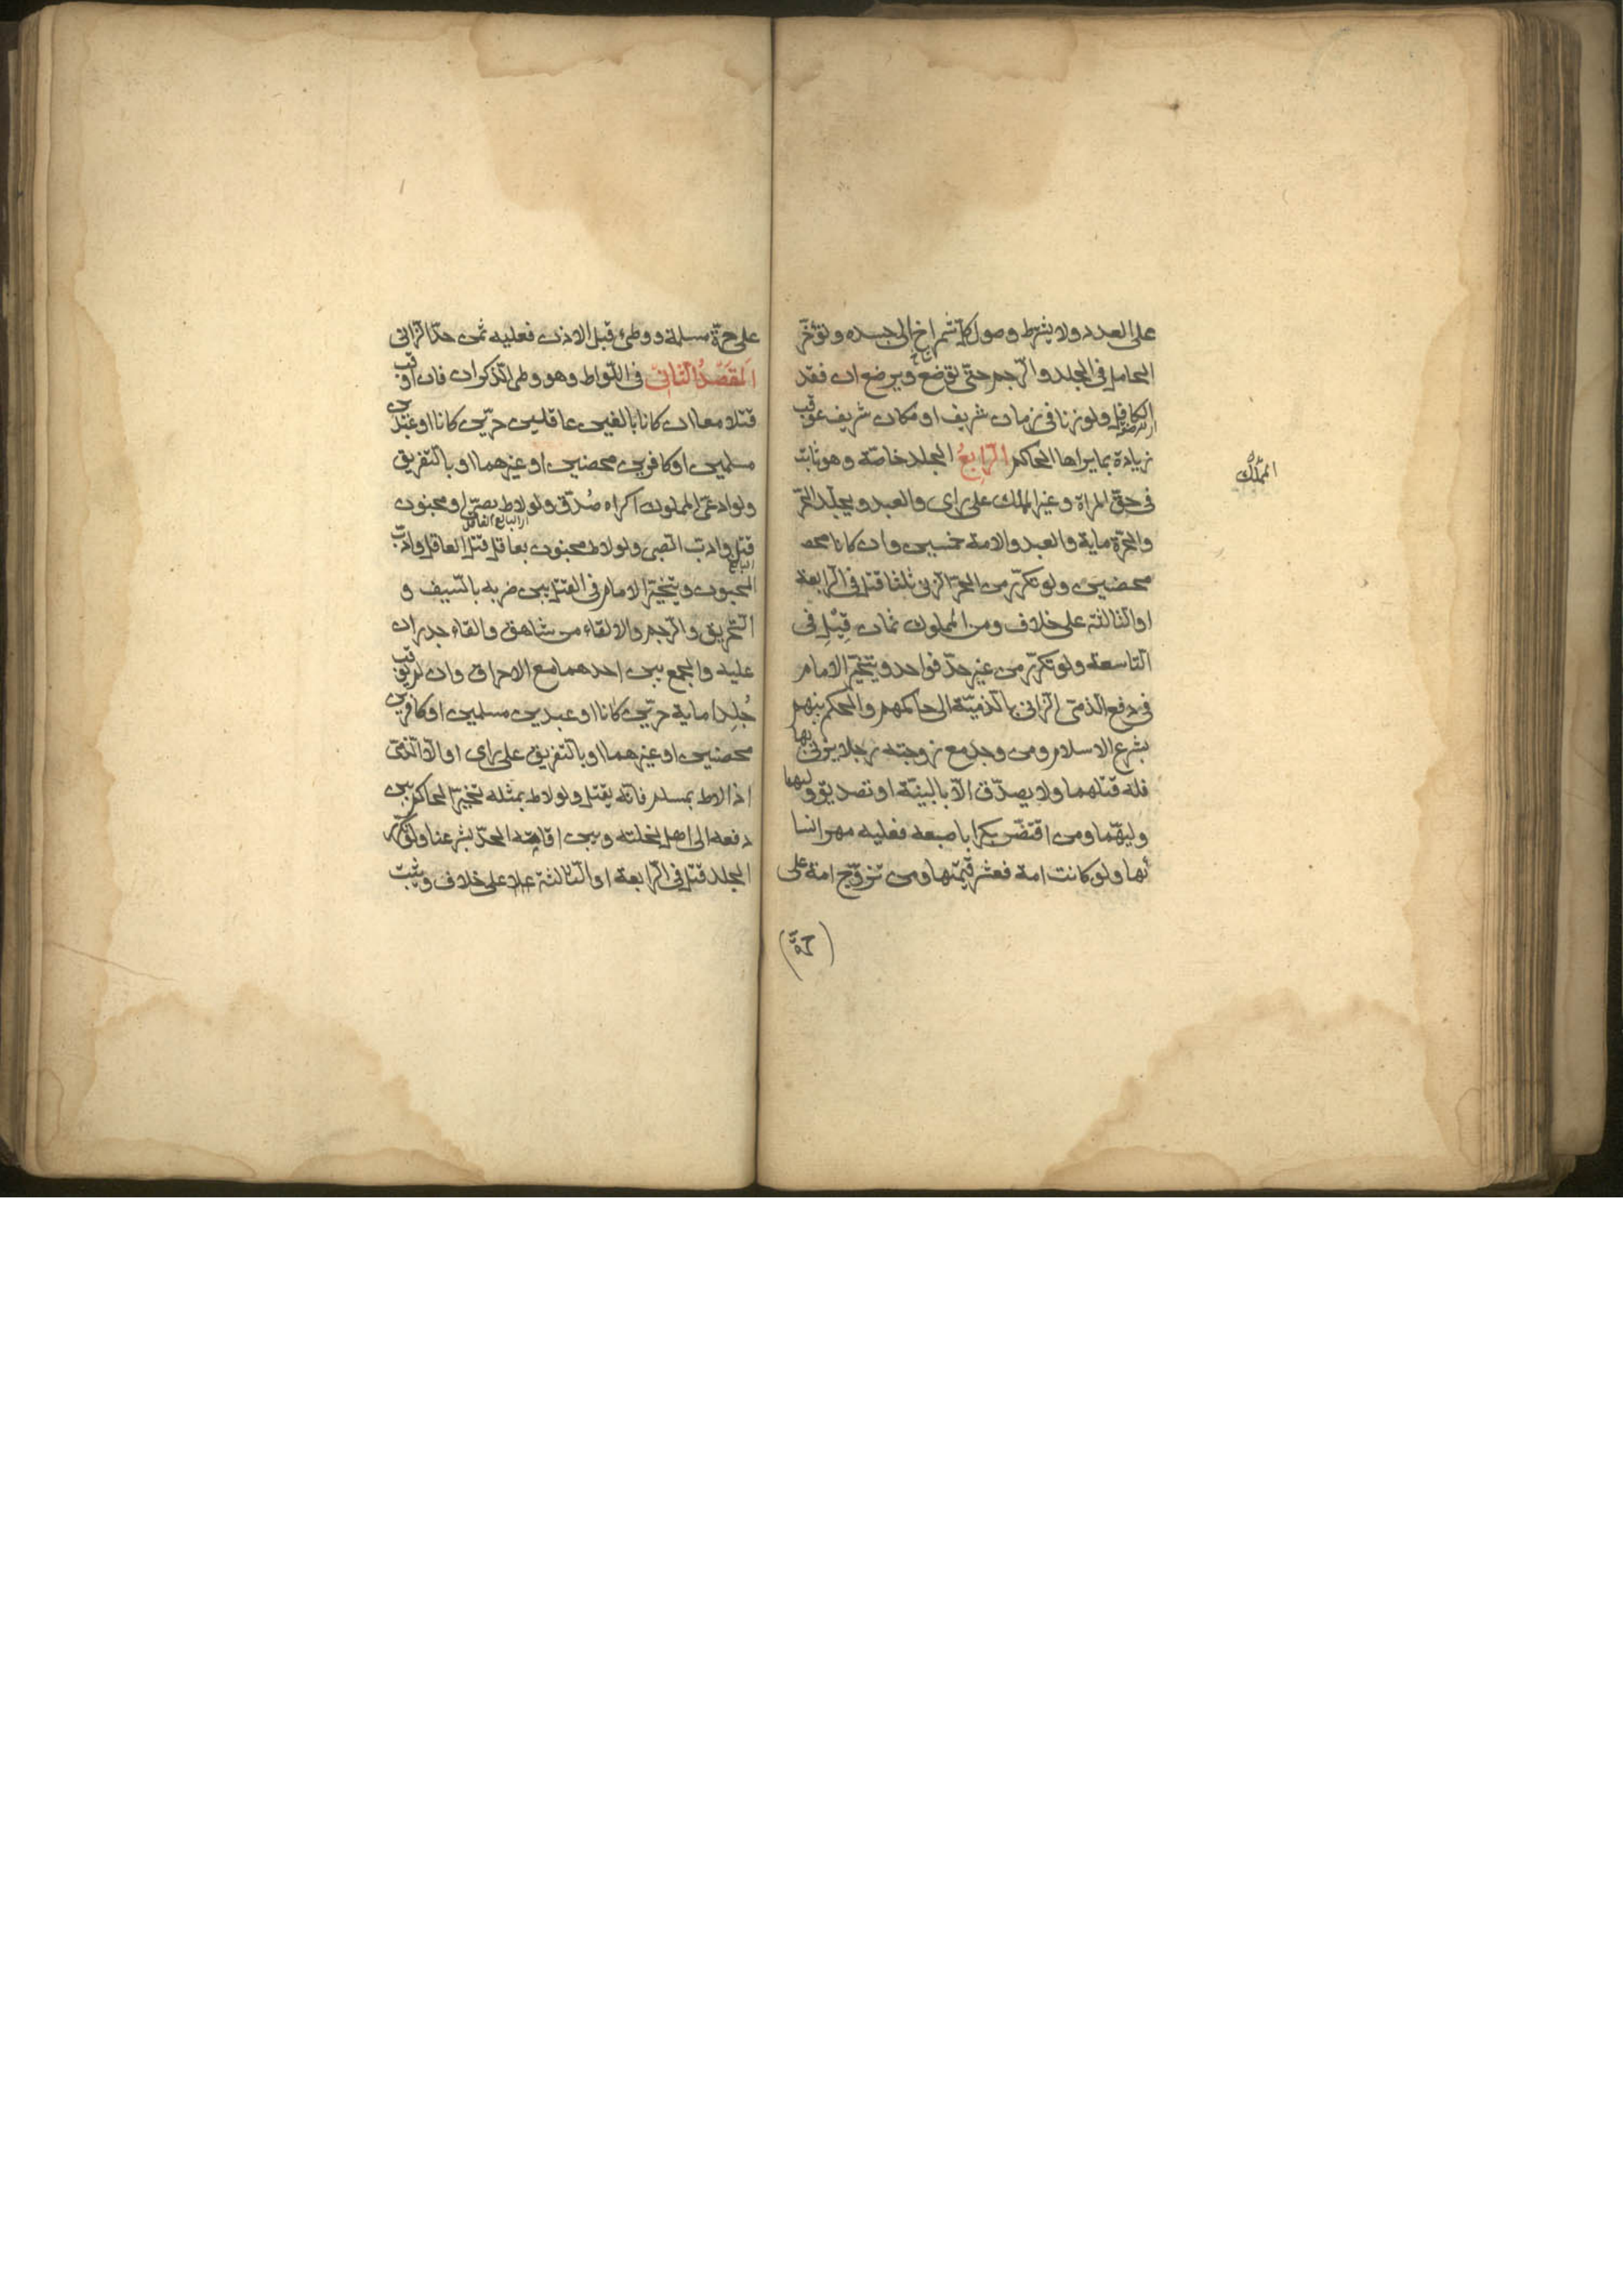 على العدد ولا يشترط وصول كل شمراخ الى جسده ولتؤخر
الحامل في الجلد والرجم حتى توضع ويرضع ان فقد
الكافل ولو زنا في زمان شريف او مكان شريف عوقب
زيادة بما يراها الحاكم الرابعُ الجلد خاصّة وهو ثابت
في حقّ المراة وغير المملك على راى والعبد ويجلد الحرّ
والحرّة ماية والعبد والامة خمسين وان كانا محصـ
محصنين ولو تكرّر من الحرّ الزنى ثلثا قتل في الرابعة
او الثالثة على خلاف ومن المملوك ثمان قِيْل في
التاسعة ولو تكرّر من غير حدّ فواحد ويتخيّر الامام
في دفع الذمّى الزانى بالذميّة الى حاكمهم والحكم بينهم
بشرع الاسلام ومن وجد مع زوجته رجلا يزنى بها
فله قتلهما ولا يصدّق الّا بالبينة او تصديق وليهما
وليهّما ومن اقتضّ بكرا باصبعه فعليه مهر انسا
ئها ولو كانت امة فعشر قيمتها ومن تزوّج امة على
المملّك
على حرّة مسلمة ووطئ قبل الاذن فعليه ثمن حدّ الزانى
المَقصَدُ الثانىّ في اللّواط وهو وطى الذكران فان اوقب
قتلا معا ان كانا بالغين عاقلين حرّين كانا او عبدين
مسلمين او كافرين محصنين او غيرهما او بالتفريق
ولو ادعى المملوك اكراه صُدّق ولو لاط بصبىّ او مجنون
اى البالغ العاقل
قتل وادب الصبى ولو لاط مجنون بعاقل قتل العاقل وادّب
البالغ
المجنون ويتخيّر الامام في القتل بين ضربه بالسّيف و
التحريق والرجم والالقاء من شاهق والقاء جدران
عليه والجمع بين احدهما مع الاحراق وان لم يوقب
جُلِدا ماية حرّين كانا او عبدين مسلمين او كافرين
محصنين او غيرهما او بالتفريق على راى او الّا الذمّى
اذا لاط بمسلم فانّه يقتل ولو لاط بمثله تخيّر الحاكم بين
دفعه الى اهل نحلته وبين اقامته الحدّ بشرعنا ولو تكرّر
الجلد قتل في الرابعة او الثالثة على خلاف ويثبت